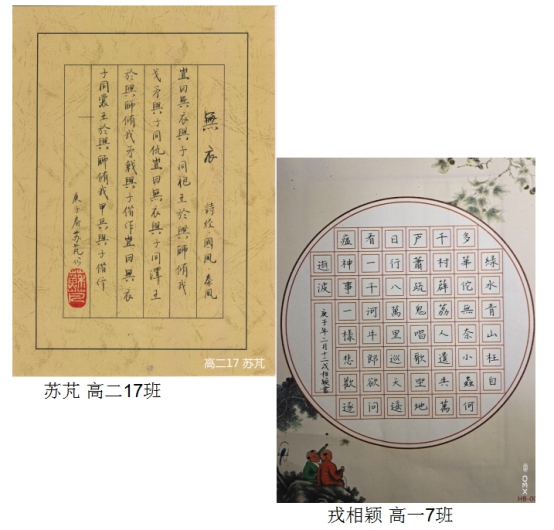 無衣 詩經 國風 秦風
豈曰無衣與子同袍王於興師脩我
戈矛與子同仇豈曰無衣與子同澤王
於興師脩我矛戟與子偕作豈曰無衣
子同裳王於興師脩我甲兵與子偕行
庚子春苏芃
高二17 苏芃
苏芃 高二17班
綠水青山枉自
多華佗無奈小蟲何
千村薜荔人遺矢萬
户蕭疏鬼唱歌坐地
日行八萬里巡天遙
看一千河牛郎欲问
瘟神事一樣悲歡逐
逝波
庚子年二月十二戎相颖書
戎相颖 高一7班